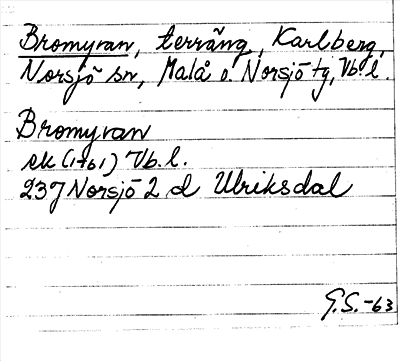 Bromyran, terräng, Karlberg,
Norsjö sn, Malå o. Norsjö tg, Vb. l.
Bromyran
ek (1961) Vb. l.
23J Norsjö 2 d Ulriksdal
G.S.-63